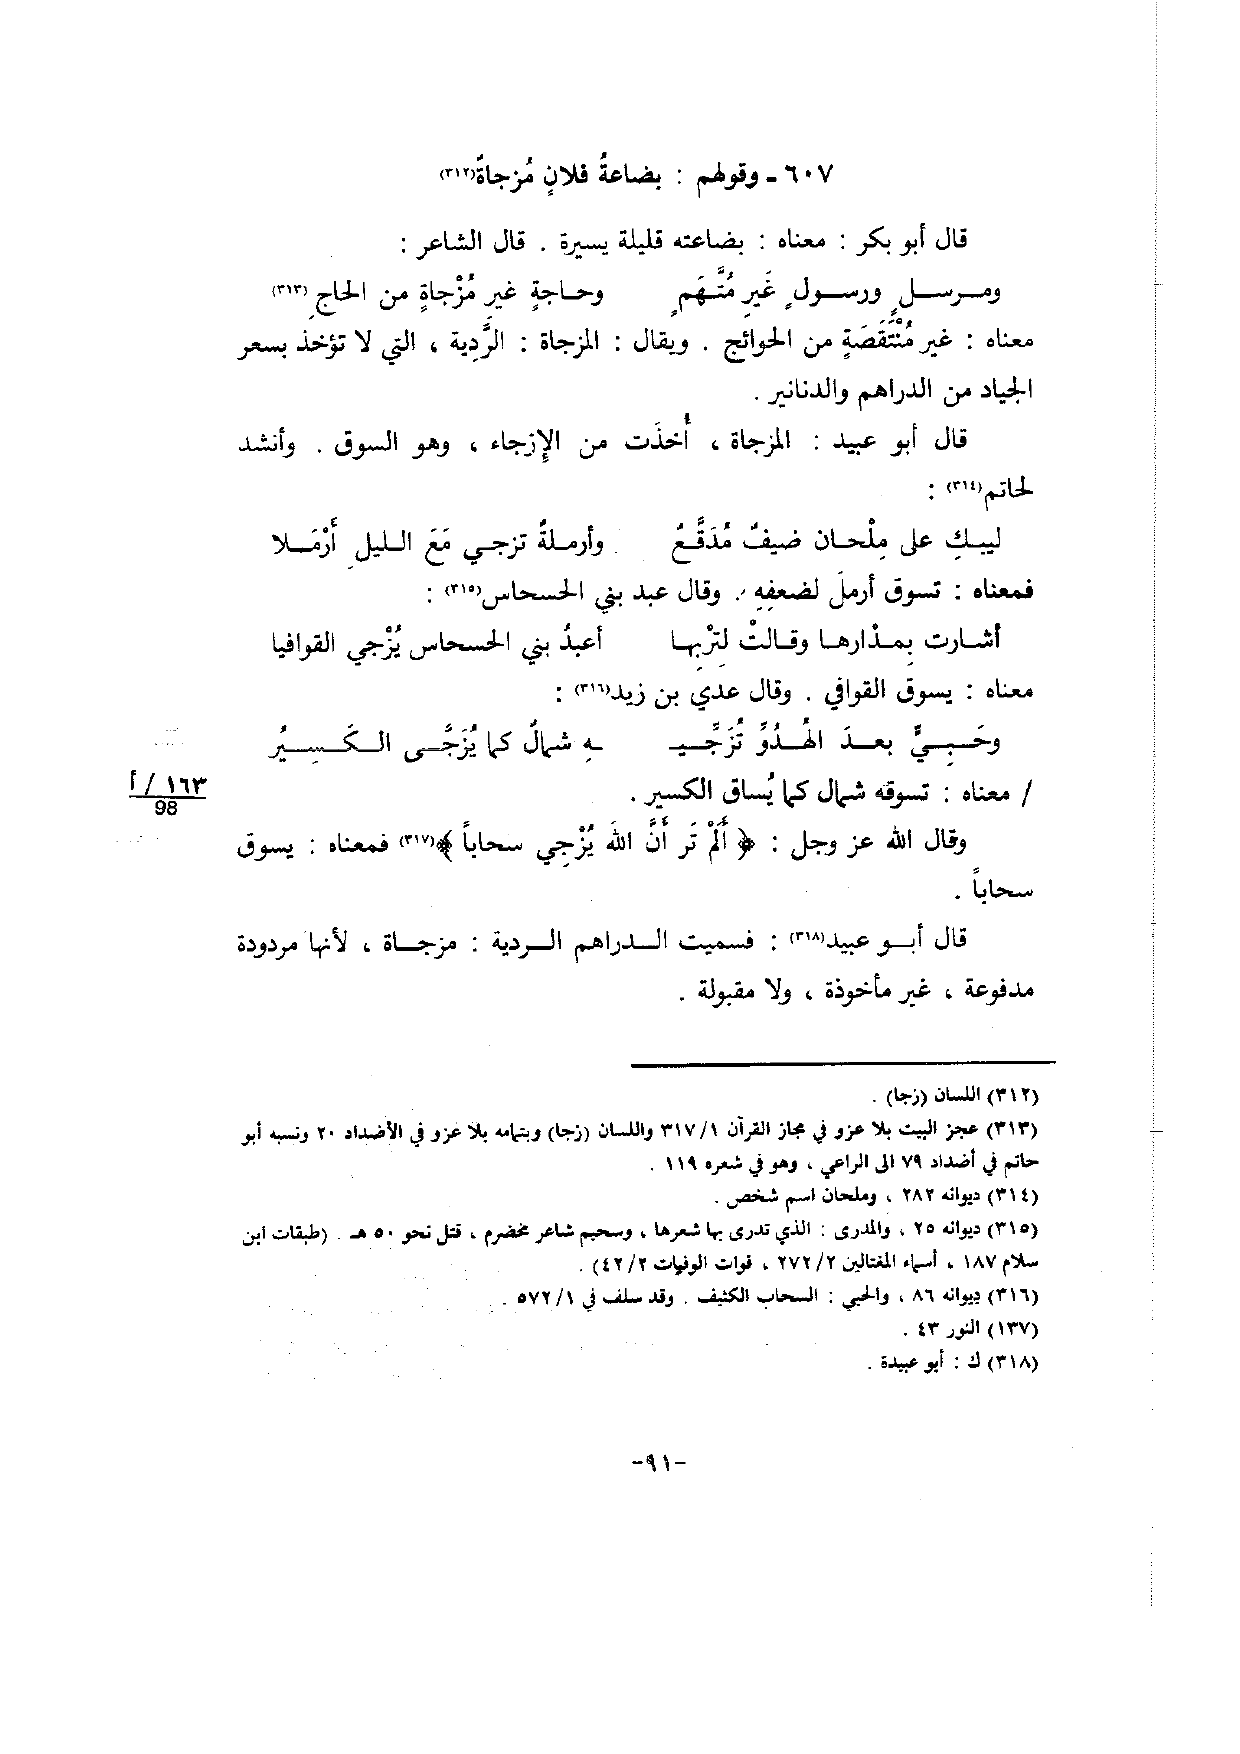 ٦٠٧ - وقولهم : بضاعةُ فلانٍ مُزجاةٌ(٣١٢)
قال أبو بكر : معناه : بضاعته قليلة يسيرة . قال الشاعر :
ومـرسـلٍ ورسـولٍ غَيرِ مُتَّهَمٍ وحـاجةٍ غيرِ مُزْجاةٍ من الحاجِ(٣١٣)
معناه : غير مُنْتَقَصَةٍ من الحوائج . ويقال : المزجاة : الرَّدِية ، التي لا تؤخذ بسعر
الجياد من الدراهم والدنانير .
قال أبو عبيد : المزجاة ، أُخذَت من الإِزجاء ، وهو السوق . وأنشد
لحاتم(٣١٤) :
ليبـكِ على مِلْحـان ضيفٌ مُدَفَّعٌ وأرمـلةٌ تزجـي مَعَ الليلِ أَرْمَـلا
فمعناه : تسوق أرملَ لضعفِهِ . وقال عبد بني الحسحاس(٣١٥) :
أشـارت بمـدْارهـا وقـالتْ لتِرْبِهـا أعبدُ بني الحسحاس يُزْجي القوافيا
معناه : يسوق القوافي . وقال عدي بن زيد(٣١٦) :
وحَـبـيٍّ بعـدَ الهُـدُوِّ تُزَجِّـيـ ـهِ شمالٌ كما يُزَجَّـى الـكَـسِـيرُ
/ معناه : تسوقه شمال كما يُساق الكسير .
١٦٣ / أ
98
وقال الله عز وجل : ﴿ أَلَمْ تَر أَنَّ اللهَ يُزْجِي سحاباً ﴾(٣١٧) فمعناه : يسوق
سحاباً .
قال أبـو عبيد(٣١٨) : فسميت الـدراهم الـردية : مزجـاة ، لأنها مردودة
مدفوعة ، غير مأخوذة ، ولا مقبولة .
(٣١٢) اللسان (زجا) .
(٣١٣) عجز البيت بلا عزو في مجاز القرآن ٣١٧/١ واللسان (زجا) وبتمامه بلا عزو في الأضداد ٢٠ ونسبه أبو
حاتم في أضداد ٧٩ الى الراعي ، وهو في شعره ١١٩ .
(٣١٤) ديوانه ٢٨٢ ، وملحان اسم شخص .
(٣١٥) ديوانه ٢٥ ، والمدرى : الذي تدرى بها شعرها ، وسحيم شاعر مخضرم ، قتل نحو ٥٠ هـ . (طبقات ابن
سلام ١٨٧ ، أسماء المغتالين ٢٧٢/٢ ، فوات الوفيات ٤٢/٢) .
(٣١٦) ديوانه ٨٦ ، والحبي : السحاب الكثيف . وقد سلف في ٥٧٢/١ .
(١٣٧) النور ٤٣ .
(٣١٨) ك : أبو عبيدة .
-٩١-